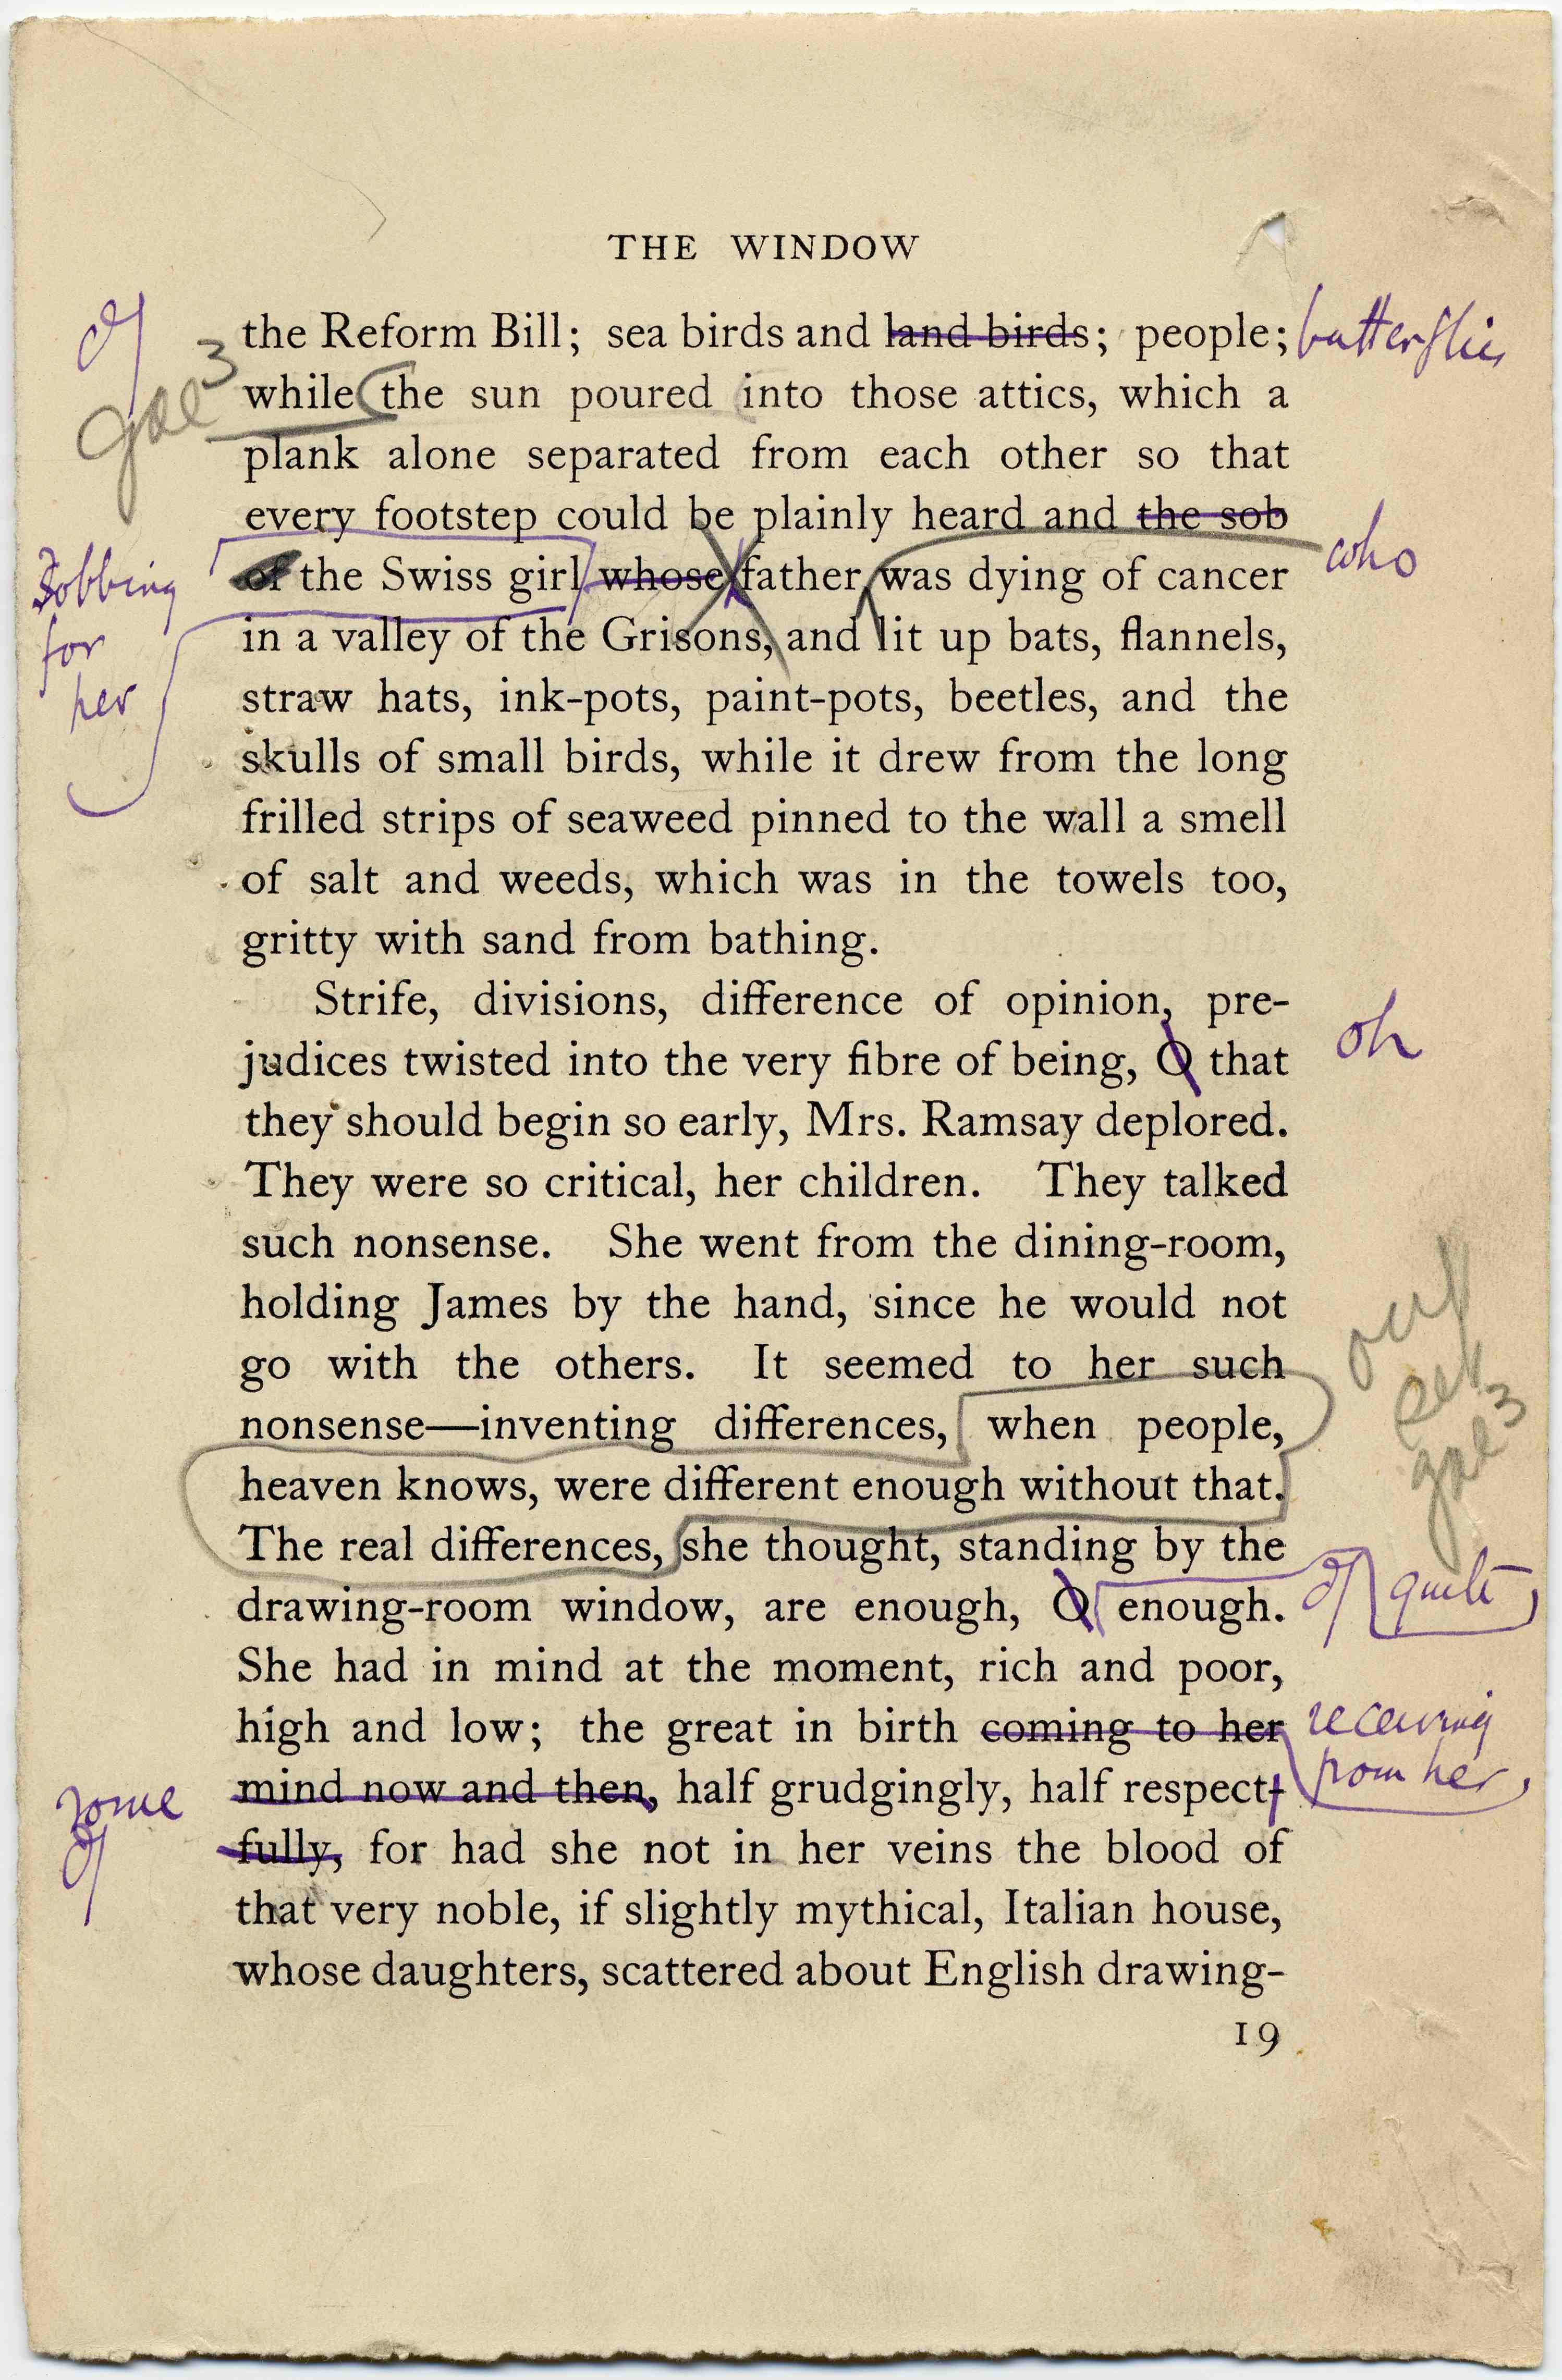 THE WINDOW
the Reform Bill; sea birds and land birds; people; butterflies
while the sun poured into those attics, which a
gal 3
plank alone separated from each other so that
every footstep could be plainly heard and the sob
who
of the Swiss girl whose father was dying of cancer
Sobbing
for
her
in a valley of the Grisons, and lit up bats, flannels,
straw hats, ink-pots, paint-pots, beetles, and the
skulls of small birds, while it drew from the long
frilled strips of seaweed pinned to the wall a smell
of salt and weeds, which was in the towels too,
gritty with sand from bathing.
Strife, divisions, difference of opinion, pre-
judices twisted into the very fibre of being, O that
oh
they should begin so early, Mrs. Ramsay deplored.
They were so critical, her children. They talked
such nonsense. She went from the dining-room,
holding James by the hand, since he would not
go with the others. It seemed to her such
nonsense—inventing differences, when people,
gal 3
heaven knows, were different enough without that.
The real differences, she thought, standing by the
drawing-room window, are enough, O enough.
quite
She had in mind at the moment, rich and poor,
high and low; the great in birth coming to her
receiving
from her,
mind now and then, half grudgingly, half respect-
some
fully, for had she not in her veins the blood of
that very noble, if slightly mythical, Italian house,
whose daughters, scattered about English drawing-
19